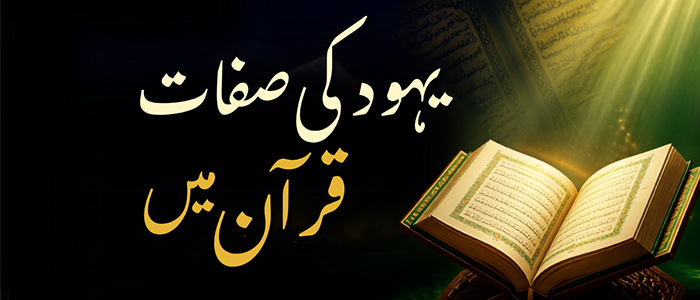 یہود کی صفات
قرآن میں